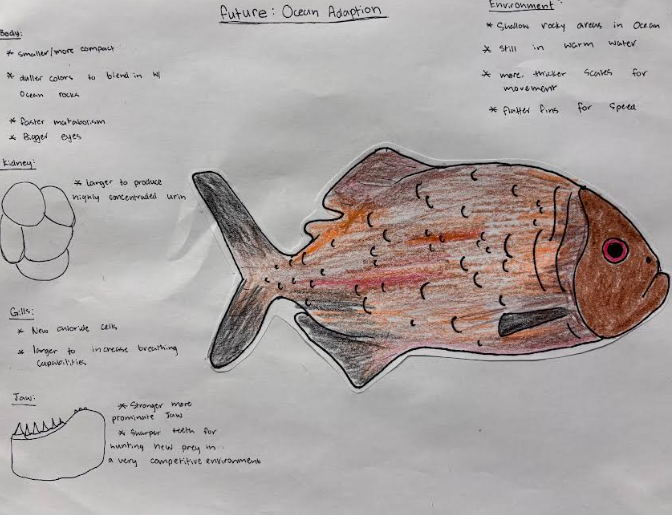 future: Ocean Adaption
Body:
* smaller/more compact
* duller colors to blend in w/
Ocean rocks
* faster matabolism
* Bigger eyes
Kidney:
* Larger to produce
highly concentraded urin
Gills:
* New chloride cells
* larger to increase breathing
Capabilities
Jaw:
* Stronger more
prominate Jaw
* Sharper teeth for
hunting new prey in
a very competitive environment
Environment:
* Shallow rocky areas in Ocean
* still in warm water
* more, thicker scales for
movement
* flatter fins for speed